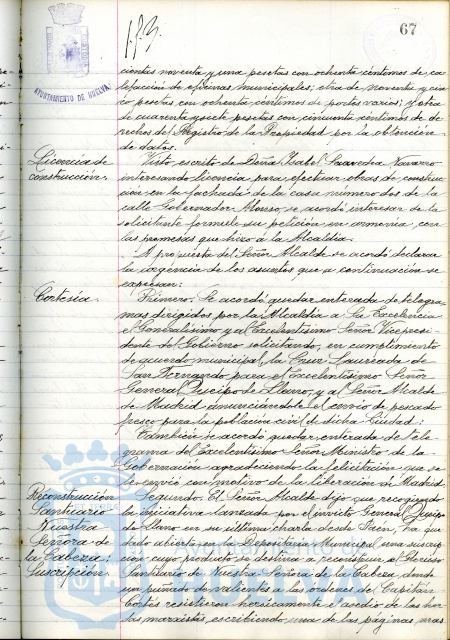 67
AYUNTAMIENTO DE HUELVA
cientas noventa y una pesetas con ochenta céntimos de ca-
lefacción de oficinas municipales; otra de noventa y cin-
co pesetas con ochenta céntimos de portes varios; y otra
de cuarenta y siete pesetas con cincuenta céntimos de de-
rechos del Registro de la Propiedad por la obtención
de datos.
Licencia de
construcción.
Visto escrito de Doña Isabel Saavedra Navarro
interesando licencia para efectuar obras de construc-
ción en la fachada de la casa número dos de la
calle Gobernador Alonso, se acordó interesar de la
solicitante formule su petición en armonía con
las promesas que hizo a la Alcaldía.
A propuesta del Señor Alcalde se acordó declarar
la urgencia de los asuntos que a continuación se
expresan:
Cortesía.
Primero. Se acordó quedar enterada de telegra-
mas dirigidos por la Alcaldía a Su Excelencia
el Generalísimo y al Excelentísimo Señor Vicepresi-
dente del Gobierno solicitando, en cumplimiento
de acuerdo municipal, la Cruz Laureada de
San Fernando para el Excelentísimo Señor
General Queipo de Llano, y al Señor Alcalde
de Madrid anunciándole el envío de pescado
fresco para la población civil de dicha Ciudad;
También se acordó quedar enterada de tele-
grama del Excelentísimo Señor Ministro de la
Gobernación agradeciendo la felicitación que se
le envió con motivo de la liberación de Madrid.
Reconstrucción
Santuario
Nuestra
Señora de
la Cabeza:
Suscripción.
Segundo. El Señor Alcalde dijo que recogiendo
la iniciativa lanzada por el invicto General Queipo
de Llano en su última charla desde Jaén, ha que-
dado abierta en la Depositaría Municipal una suscrip-
ción cuyo producto se destina a reconstruir el Glorioso
Santuario de Nuestra Señora de la Cabeza, donde
un puñado de valientes a las órdenes del Capitán
Cortés resistieron heroicamente el asedio de las hor-
das marxistas, escribiendo una de las páginas más
Ayuntamiento de